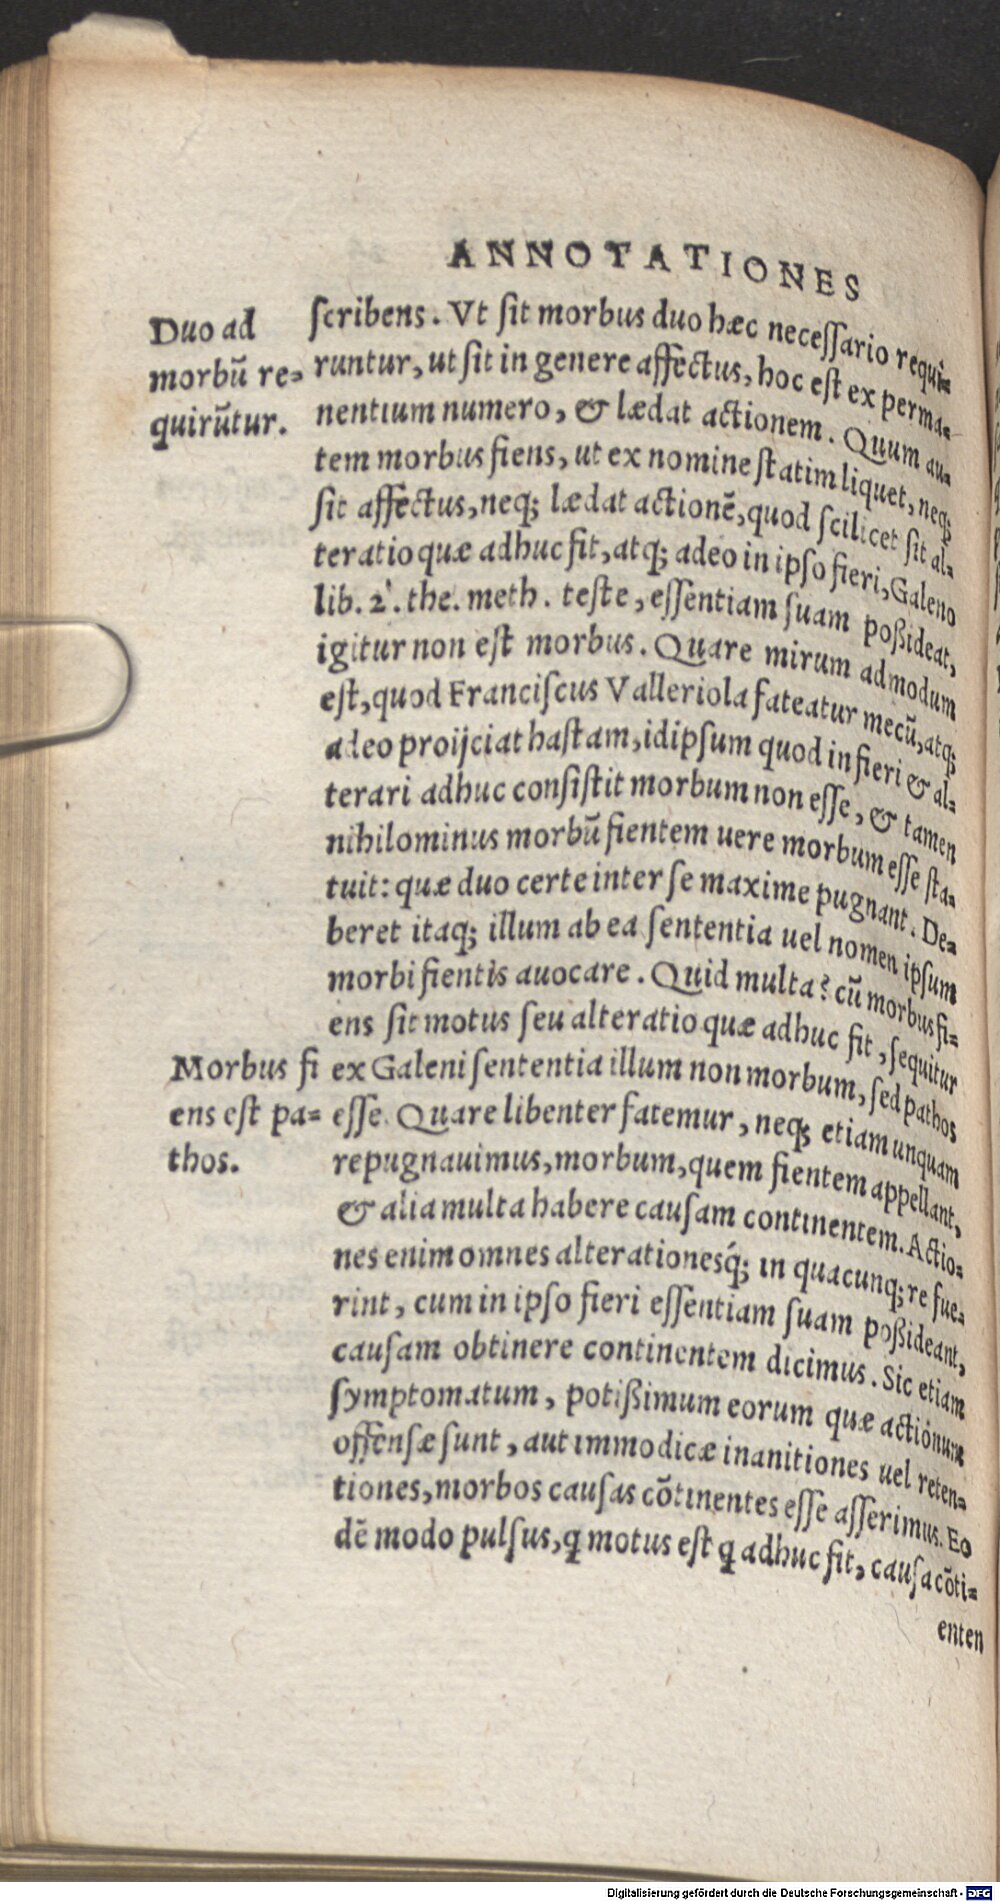 ANNOTATIONES
Duo ad
morbū re-
quirūtur.
ſcribens. Vt ſit morbus duo hæc neceſſario requi-
runtur, ut ſit in genere affectus, hoc eſt ex perma-
nentium numero, & lædat actionem. Quum au-
tem morbus fiens, ut ex nomine ſtatim liquet, neq;
ſit affectus, neq; lædat actionē, quod ſcilicet ſit al-
teratio quæ adhuc fit, atq; adeo in ipſo fieri, Galeno
lib. 2. the. meth. teſte, eſſentiam ſuam poßideat,
igitur non eſt morbus. Quare mirum admodum
eſt, quod Franciſcus Valleriola fateatur mecū, atq;
adeo proijciat haſtam, idipſum quod in fieri & al-
terari adhuc conſiſtit morbum non eſſe, & tamen
nihilominus morbū fientem uere morbum eſſe ſta-
tuit: quæ duo certe inter ſe maxime pugnant. De-
beret itaq; illum ab ea ſententia uel nomen ipſum
morbi fientis auocare. Quid multa? cū morbus fi-
ens ſit motus ſeu alteratio quæ adhuc fit, ſequitur
Morbus fi
ens eſt pa-
thos.
ex Galeni ſententia illum non morbum, ſed pathos
eſſe. Quare libenter fatemur, neq; etiam unquam
repugnauimus, morbum, quem fientem appellant,
& alia multa habere cauſam continentem. Actio-
nes enim omnes alterationesq́; in quacunq; re fue-
rint, cum in ipſo fieri eſſentiam ſuam poßideant,
cauſam obtinere continentem dicimus. Sic etiam
ſymptomatum, potißimum eorum quæ actionum
offenſæ ſunt, aut immodicæ inanitiones uel reten-
tiones, morbos cauſas cōtinentes eſſe aſſerimus. Eo
dē modo pulſus, q motus eſt q adhuc fit, cauſa cōti-
enten
Digitalisierung gefördert durch die Deutsche Forschungsgemeinschaft - DFG